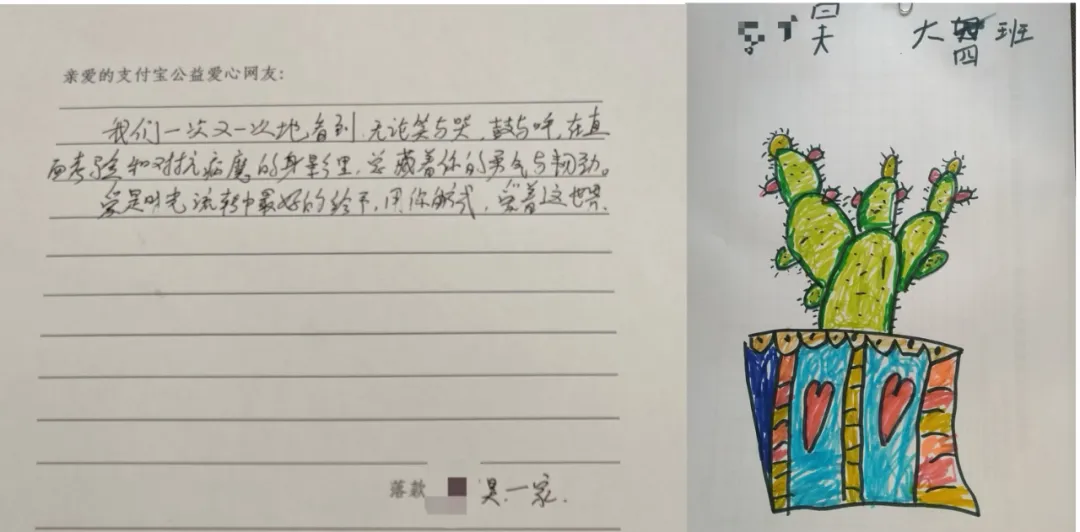 亲爱的支付宝公益爱心网友:
我们一次又一次地看到,无论笑与哭、鼓与呼,在直
面考验和对抗病魔的身影里,总藏着你的勇气与韧劲。
爱是时光流转中最好的给予,用你 式,爱着这世界.
落款 昊一家.
大 四 班